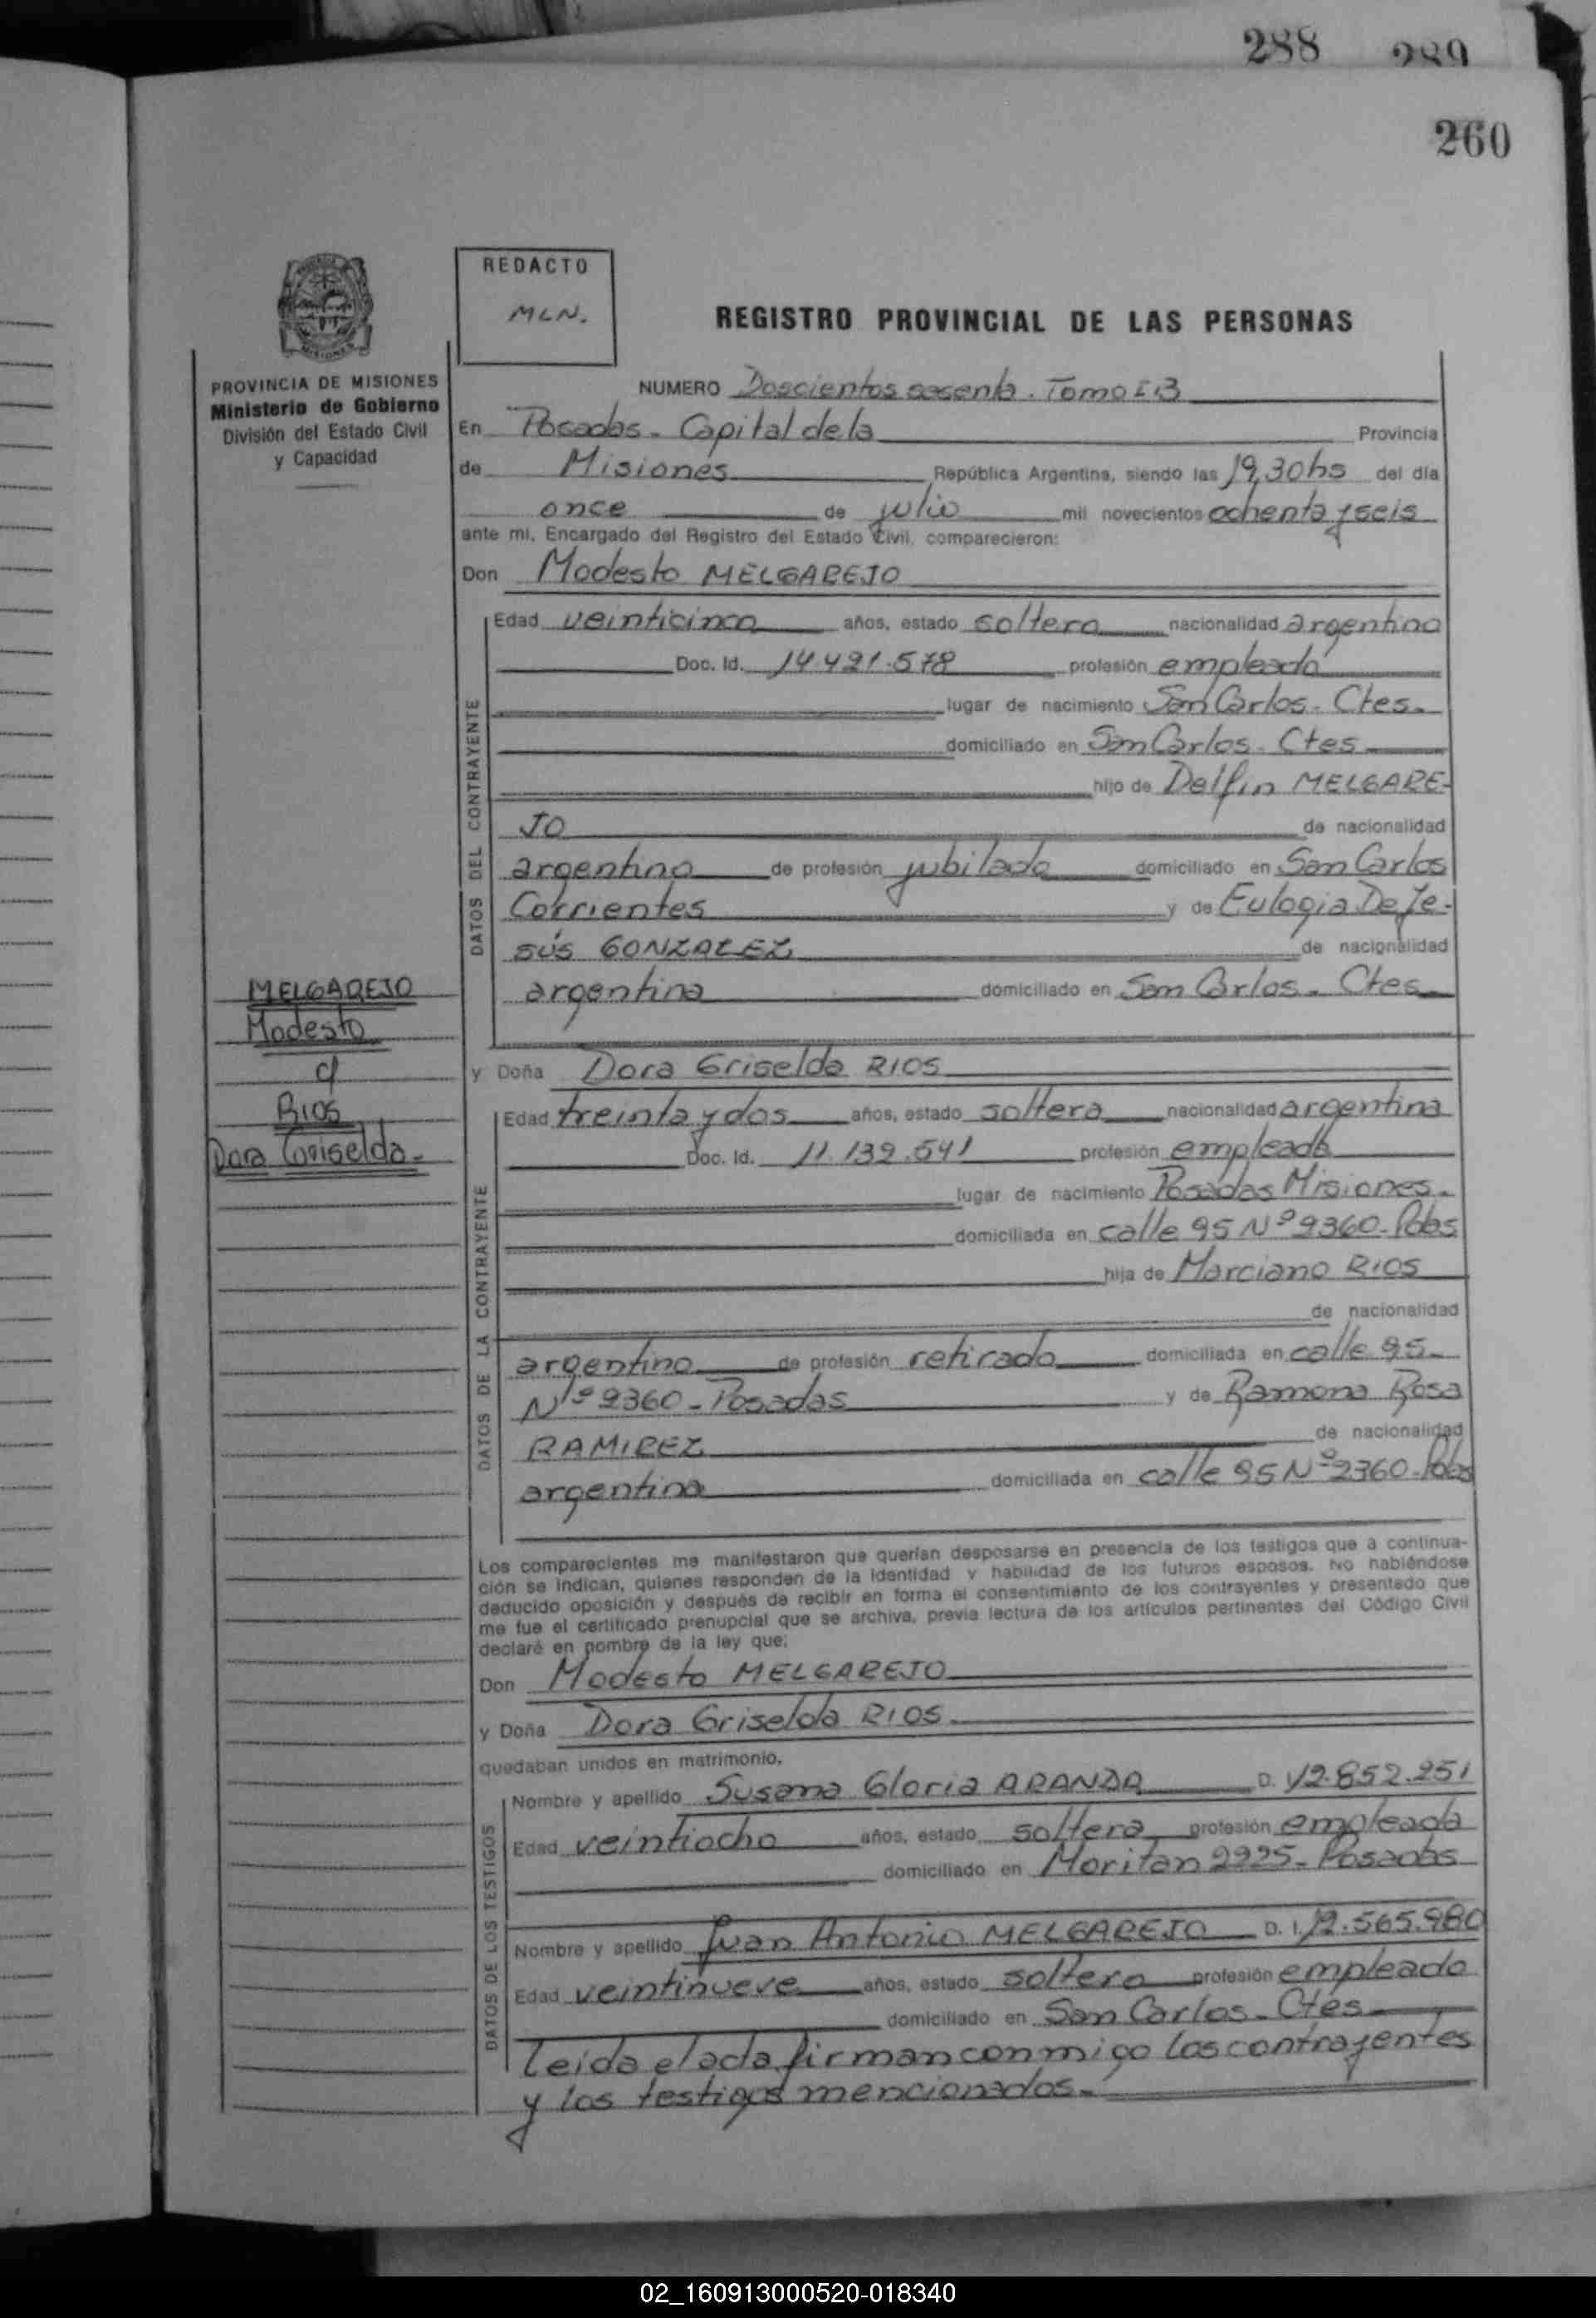 288 289
260
REDACTO
MLN.
REGISTRO PROVINCIAL DE LAS PERSONAS
PROVINCIA DE MISIONES
Ministerio de Gobierno
División del Estado Civil
y Capacidad
NUMERO Doscientos sesenta. Tomo
En Posadas - Capital de la Provincia
de Misiones República Argentina, siendo las 19,30 hs del día
once de julio mil novecientos ochenta y seis
ante mi, Encargado del Registro del Estado Civil, comparecieron:
Don Modesto MELGAREJO
DATOS DEL CONTRAYENTE
Edad veinticinco años, estado soltero nacionalidad argentino
Doc. Id. 14.421.578 profesión empleado
lugar de nacimiento San Carlos - Ctes.
domiciliado en San Carlos - Ctes
hijo de Delfin MELGARE-
JO de nacionalidad
argentino de profesión jubilado domiciliado en San Carlos
Corrientes y de Eulogia De Je-
sús GONZALEZ de nacionalidad
argentina domiciliado en San Carlos - Ctes
MELGAREJO
Modesto
c/
RIOS
Dora Griselda.-
y Doña Dora Griselda RIOS
DATOS DE LA CONTRAYENTE
Edad treinta y dos años, estado soltera nacionalidad argentina
Doc. Id. 11.139.541 profesión empleada
lugar de nacimiento Posadas Misiones.
domiciliada en calle 95 Nº 2360 - Pdas
hija de Marciano RIOS
de nacionalidad
argentino de profesión retirado domiciliada en calle 95
Nº 2360 - Posadas y de Ramona Rosa
RAMIREZ de nacionalidad
argentina domiciliada en calle 95 Nº 2360 - Pdas
Los comparecientes me manifestaron que querían desposarse en presencia de los testigos que a continua-
ción se indican, quienes responden de la identidad y habilidad de los futuros esposos. No habiéndose
deducido oposición y después de recibir en forma el consentimiento de los contrayentes y presentado que
me fue el certificado prenupcial que se archiva, previa lectura de los artículos pertinentes del Código Civil
declaré en nombre de la ley que:
Don Modesto MELGAREJO
y Doña Dora Griselda RIOS
quedaban unidos en matrimonio.
DATOS DE LOS TESTIGOS
Nombre y apellido Susana Gloria ARANDA D. 12.852.251
Edad veintiocho años, estado soltera profesión empleada
domiciliado en 2925 - Posadas
Nombre y apellido Juan Antonio MELGAREJO D. I. 12.565.980
Edad veintinueve años, estado soltero profesión empleado
domiciliado en San Carlos - Ctes
Leida el acta firman conmigo los contrayentes
y los testigos mencionados.-
02_160913000520-018340